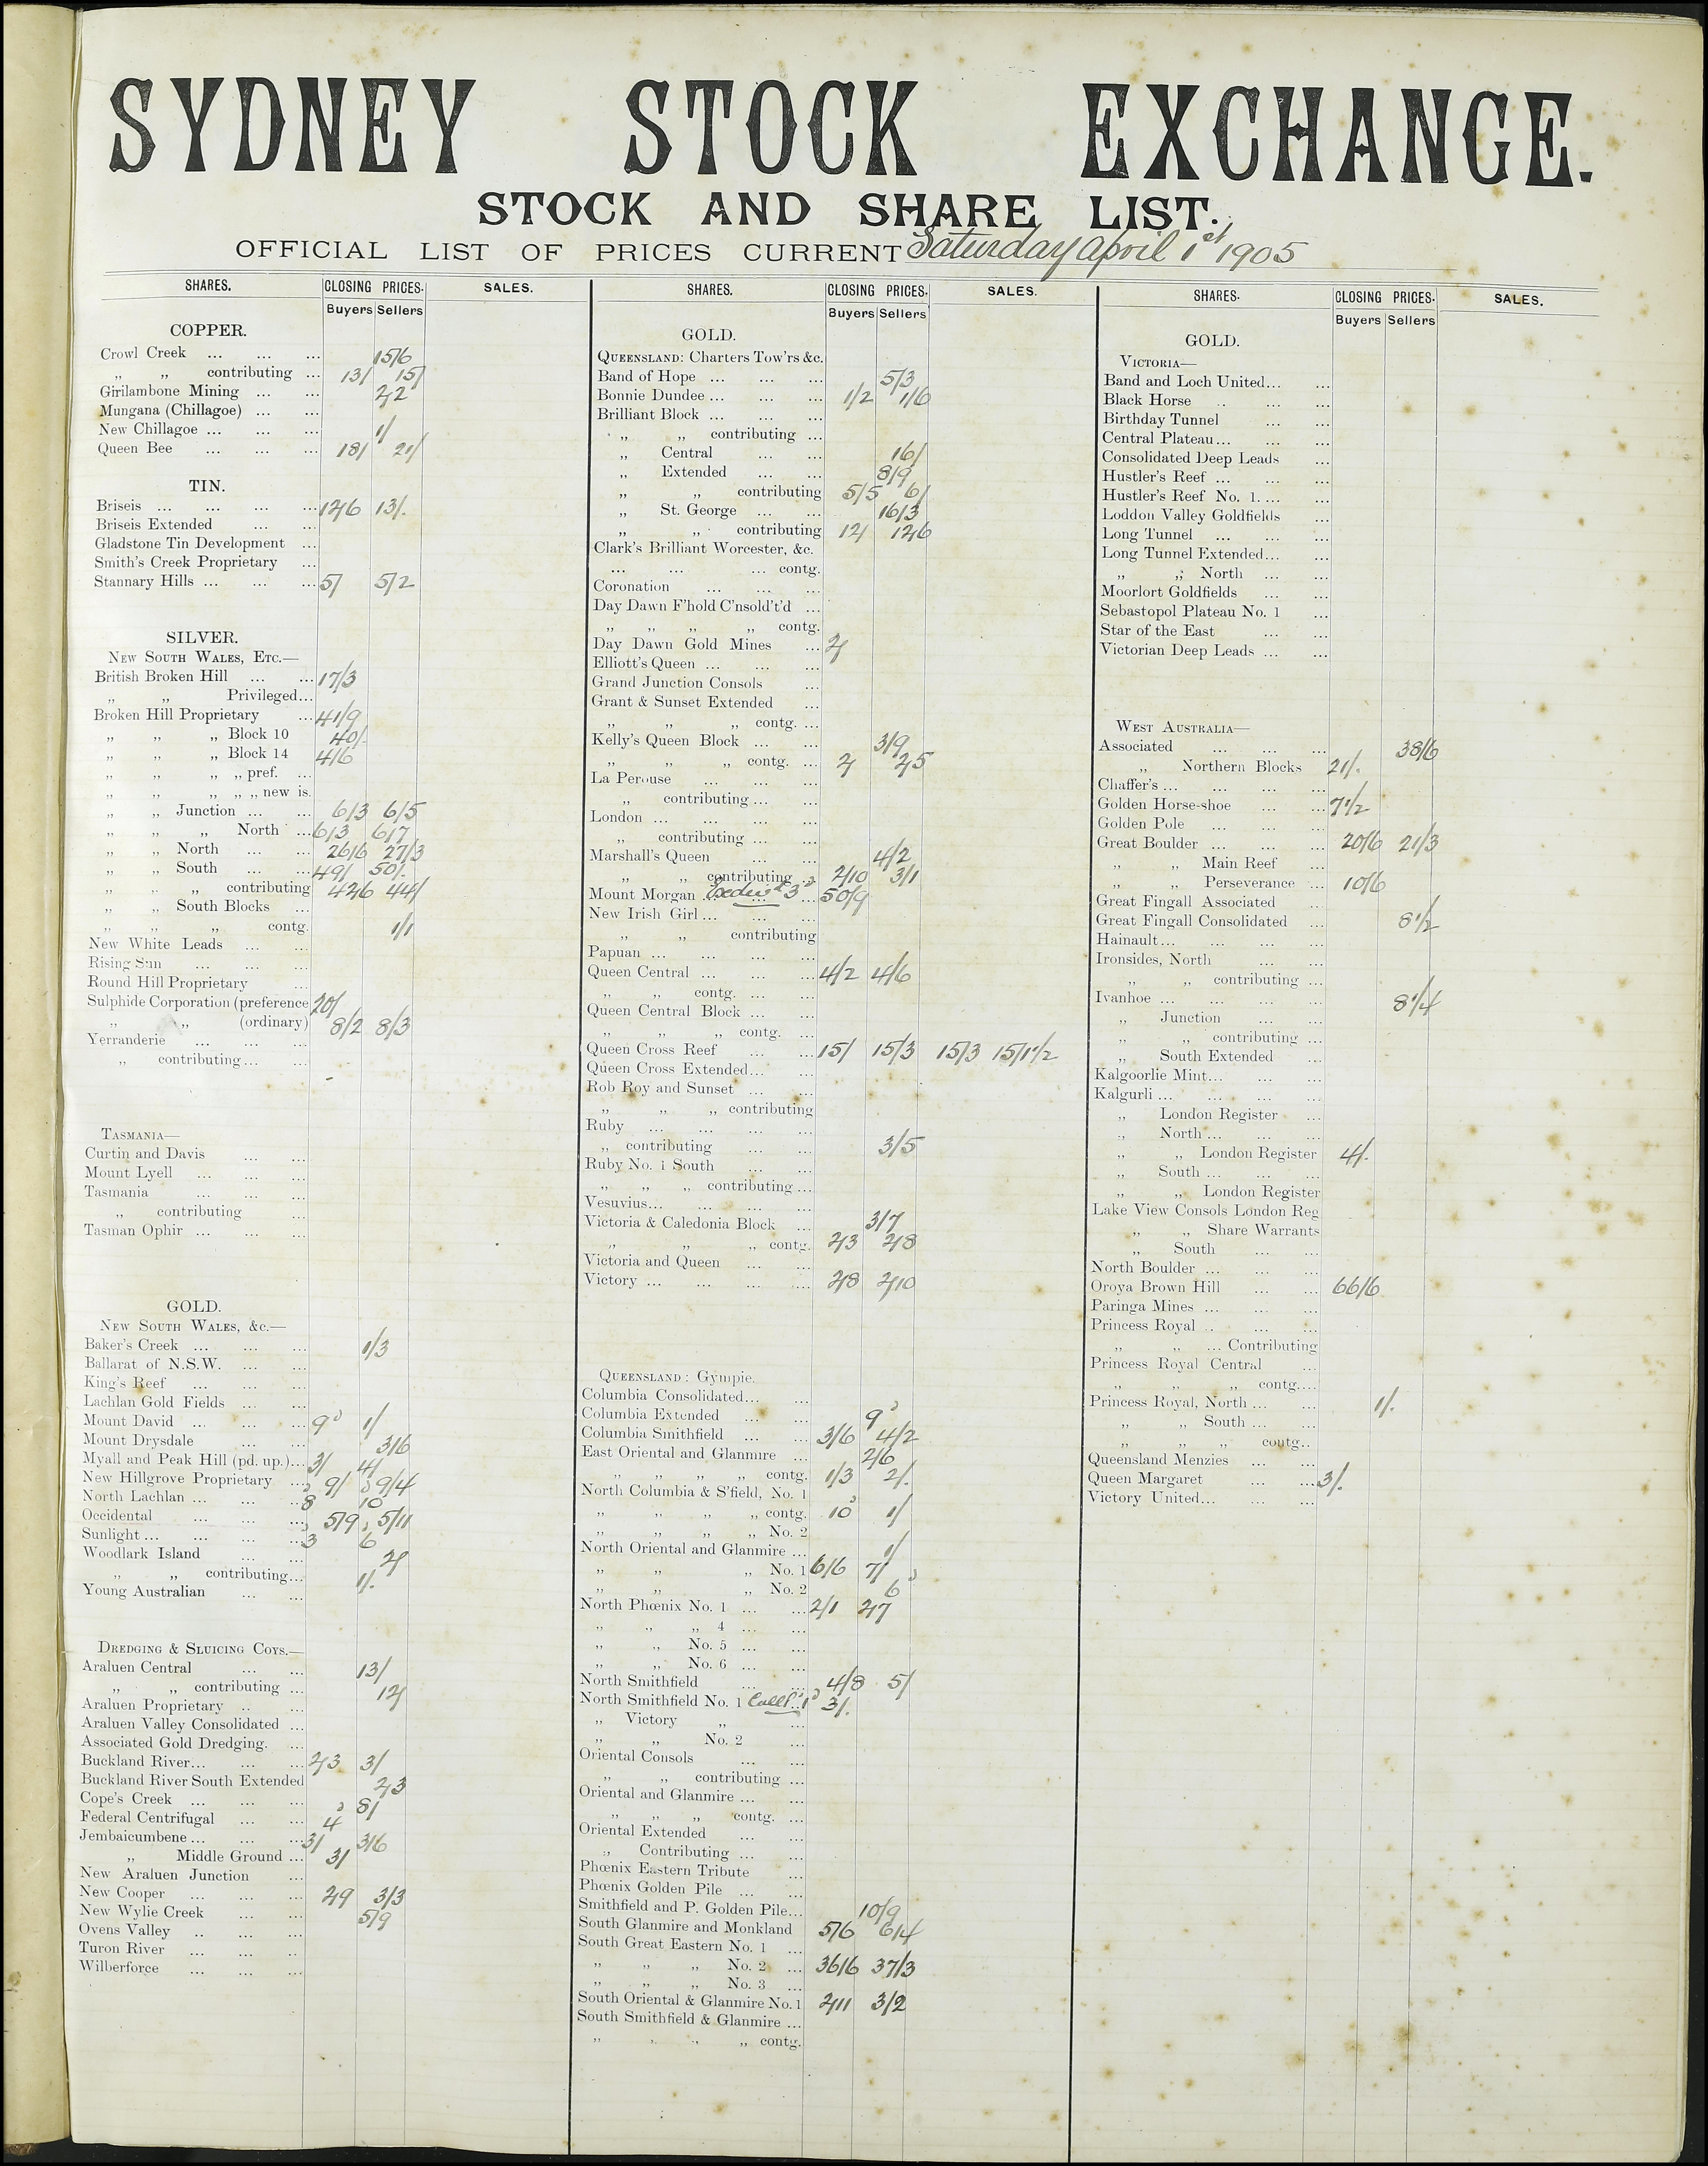 SYDNEY STOCK EXCHANGE.
STOCK AND SHARE LIST.
OFFICIAL LIST OF PRICES CURRENT Saturday April 1st 1905
SHARES. CLOSING PRICES. SALES.
Buyers Sellers
COPPER.
Crowl Creek ... ... ... 15/6
„ „ contributing ... 13/ 15/
Girilambone Mining ... ... 2/2
Mungana (Chillagoe) ... ...
New Chillagoe ... ... ... 1/
Queen Bee ... ... ... 18/ 21/
TIN.
Briseis ... ... ... ... 12/6 13/.
Briseis Extended ... ...
Gladstone Tin Development ...
Smith's Creek Proprietary ...
Stannary Hills ... ... ... 5/ 5/2
SILVER.
NEW SOUTH WALES, ETC.—
British Broken Hill ... ... 17/3
„ „ Privileged...
Broken Hill Proprietary ... 41/9
„ „ „ Block 10 40/.
„ „ „ Block 14 4/6
„ „ „ „ pref. ...
„ „ „ „ „ new is.
„ „ Junction ... ... 6/3 6/5
„ „ „ North ... 6/3 6/7
„ „ North ... ... 26/6 27/3
„ „ South ... ... 49/ 50/.
„ „ „ contributing 42/6 44/
„ „ South Blocks ...
„ „ „ contg. 1/1
New White Leads ... ...
Rising Sun ... ... ...
Round Hill Proprietary ...
Sulphide Corporation (preference 20/
„ „ (ordinary) 8/2 8/3
Yerranderie ... ... ...
„ contributing... ...
TASMANIA—
Curtin and Davis ... ...
Mount Lyell ... ... ...
Tasmania ... ... ...
„ contributing ...
Tasman Ophir ... ... ...
GOLD.
NEW SOUTH WALES, &c.—
Baker's Creek ... ... ... 1/3
Ballarat of N.S.W. ... ...
King's Reef ... ... ...
Lachlan Gold Fields ... ...
Mount David ... ... ... 9d 1/
Mount Drysdale ... ... 3/6
Myall and Peak Hill (pd. up.)... 3/ 4/
New Hillgrove Proprietary ... 9/ 9/4
North Lachlan ... ... ... 8d 10d
Occidental ... ... ... 5/9 5/11
Sunlight ... ... ... 3d 6d
Woodlark Island ... ... 2/
„ „ contributing... 1/.
Young Australian ... ...
DREDGING & SLUICING COYS.—
Araluen Central ... ... 13/
„ „ contributing ... 12/
Araluen Proprietary .. ...
Araluen Valley Consolidated ...
Associated Gold Dredging. ...
Buckland River... ... ... 2/3 3/
Buckland River South Extended 2/3
Cope's Creek ... ... ... 8/
Federal Centrifugal ... ... 4d
Jembaicumbene ... ... ... 3/ 3/6
„ Middle Ground ... 3/
New Araluen Junction ...
New Cooper ... ... ... 2/9 3/3
New Wylie Creek ... ... 5/9
Ovens Valley .. ... ...
Turon River ... ... ..
Wilberforce ... ... ...
SHARES. CLOSING PRICES. SALES.
Buyers Sellers
GOLD.
QUEENSLAND: Charters Tow'rs &c.
Band of Hope ... ... ... 5/3
Bonnie Dundee ... ... ... 1/2 1/6
Brilliant Block ... ... ...
„ „ contributing ...
„ Central ... ... 16/
„ Extended ... ... 8/9
„ „ contributing 5/5 6/
„ St. George ... ... 16/3
„ „ contributing 12/ 12/6
Clark's Brilliant Worcester, &c.
... ... ... contg.
Coronation ... ... ...
Day Dawn F'hold C'nsold't'd ...
„ „ „ „ contg.
Day Dawn Gold Mines ... 2/
Elliott's Queen ... ... ...
Grand Junction Consols ...
Grant & Sunset Extended ...
„ „ „ contg. ...
Kelly's Queen Block ... ... 3/9
„ „ „ contg. ... 2/ 2/5
La Perouse ... ... ...
„ contributing ... ...
London ... ... ... ...
„ contributing ... ...
Marshall's Queen ... ... 4/2
„ „ contributing .. 2/10 3/1
Mount Morgan ... ... ... 50/9
New Irish Girl ... ... ...
„ „ contributing
Papuan ... ... ... ...
Queen Central ... ... ... 4/2 4/6
„ „ contg. ... ...
Queen Central Block ... ...
„ „ „ contg. ...
Queen Cross Reef ... ... 15/ 15/3 15/3 15/1½
Queen Cross Extended... ...
Rob Roy and Sunset ... ...
„ „ „ contributing
Ruby ... ... ... ...
„ contributing ... ... 3/5
Ruby No. 1 South ... ...
„ „ „ contributing ...
Vesuvius... ... ... ...
Victoria & Caledonia Block ... 3/7
„ „ „ contg. 2/3 2/8
Victoria and Queen ... ...
Victory ... ... ... .... 2/8 2/10
QUEENSLAND: Gympie.
Columbia Consolidated... ...
Columbia Extended ... ... 9d
Columbia Smithfield ... ... 3/6 4/2
East Oriental and Glanmire ... 2/6
„ „ „ „ contg. 1/3 2/.
North Columbia & S'field, No. 1
„ „ „ „ contg. 10d 1/
„ „ „ „ No. 2
North Oriental and Glanmire ... 1/
„ „ „ No. 1 6/6 7/
„ „ „ No. 2 6d
North Phœnix No. 1 ... ... 2/1 2/7
„ „ „ 4 ... ...
„ „ No. 5 ... ...
„ „ No. 6 ... ...
North Smithfield ... ... 4/8 5/
North Smithfield No. 1 Call 1d 3/.
„ Victory „ ...
„ „ No. 2 ...
Oriental Consols ... ...
„ „ contributing ...
Oriental and Glanmire ... ...
„ „ „ contg. ...
Oriental Extended ... ...
„ Contributing ... ...
Phœnix Eastern Tribute ...
Phœnix Golden Pile ... ...
Smithfield and P. Golden Pile... 10/9
South Glanmire and Monkland 5/6 6/4
South Great Eastern No. 1 ...
„ „ „ No. 2 ... 36/6 37/3
„ „ „ No. 3 ...
South Oriental & Glanmire No. 1 2/11 3/2
South Smithfield & Glanmire ...
„ „ „ „ contg.
SHARES. CLOSING PRICES. SALES.
Buyers Sellers
GOLD.
VICTORIA—
Band and Loch United... ...
Black Horse .. ... ...
Birthday Tunnel ... ...
Central Plateau... ... ...
Consolidated Deep Leads ...
Hustler's Reef ... ... ...
Hustler's Reef No. 1. ... ...
Loddon Valley Goldfields ...
Long Tunnel ... ... ...
Long Tunnel Extended... ...
„ „ North ... ...
Moorlort Goldfields ... ...
Sebastopol Plateau No. 1 ...
Star of the East ... ...
Victorian Deep Leads ... ...
WEST AUSTRALIA—
Associated ... ... ... 38/6
„ Northern Blocks 21/.
Chaffer's ... ... ... ...
Golden Horse-shoe ... ... 7½
Golden Pole ... ... ...
Great Boulder ... ... ... 20/6 21/3
„ „ Main Reef ...
„ „ Perseverance ... 10/6
Great Fingall Associated ...
Great Fingall Consolidated ... 8½
Hainault... ... ... ...
Ironsides, North ... ...
„ „ contributing ...
Ivanhoe ... ... ... ... 8¼
„ Junction ... ...
„ „ contributing ...
„ South Extended ...
Kalgoorlie Mint... ... ...
Kalgurli ... ... ... ...
„ London Register ...
„ North ... ... ...
„ „ London Register 4/.
„ South ... ... ...
„ „ London Register
Lake View Consols London Reg
„ „ Share Warrants
„ South ... ...
North Boulder ... ... ...
Oroya Brown Hill ... ... 66/6
Paringa Mines ... ... ...
Princess Royal .. ... ...
„ „ ... Contributing
Princess Royal Central ...
„ „ „ contg....
Princess Royal, North ... ... 1/.
„ „ South ... ...
„ „ „ contg..
Queensland Menzies ... ...
Queen Margaret ... ... 3/.
Victory United... ... ...